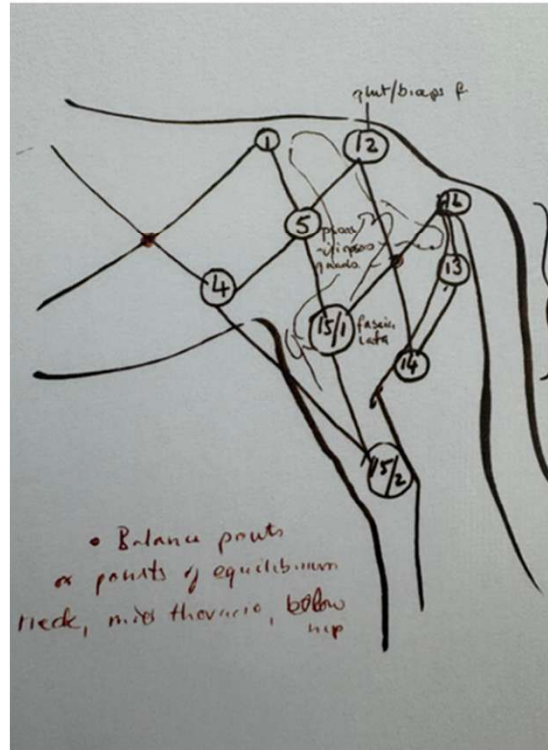 glut/biceps f
1
12
5
psoas
iliopsoas
16
13
4
15/1
fascia
lata
14
15/2
• Balance points
or points of equilibrium
neck, mid thoracic, below
hip